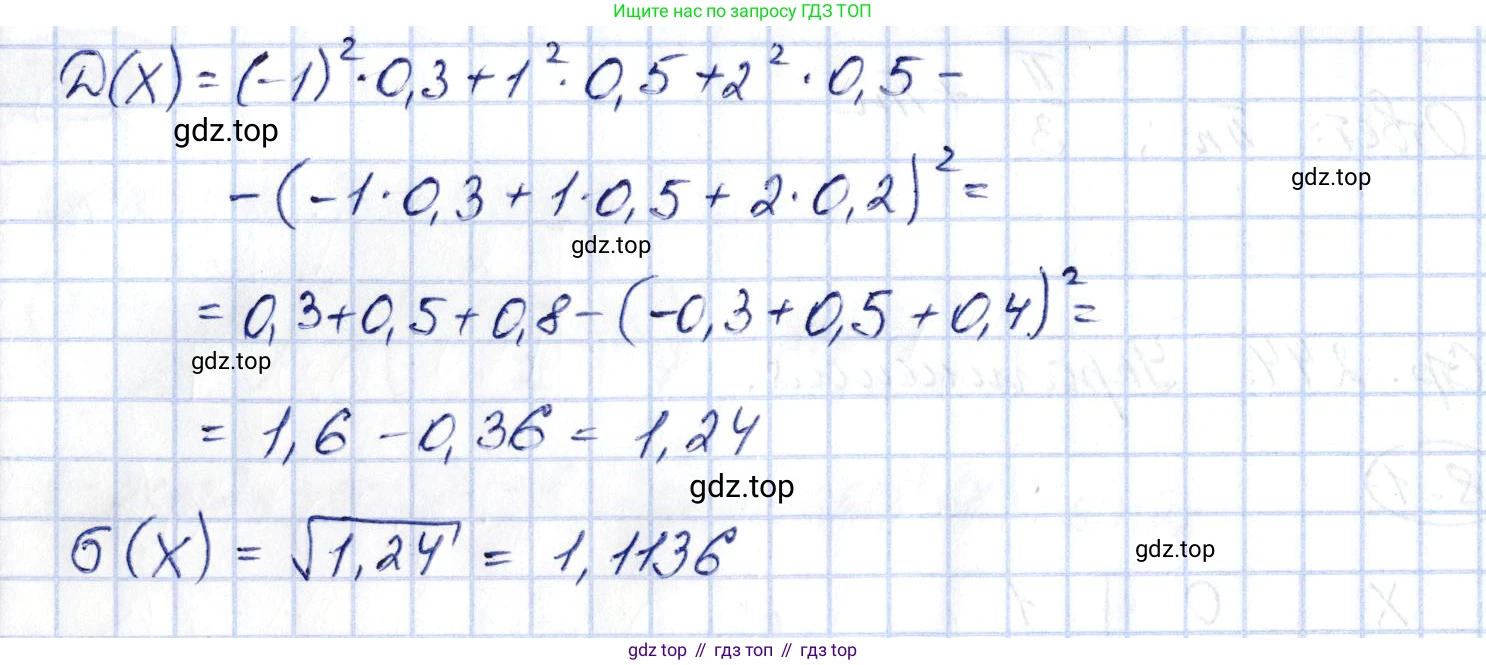 Ищите нас по запросу ГДЗ ТОП
D(X) = (-1)² · 0,3 + 1² · 0,5 + 2² · 0,5 -
gdz.top
- (-1 · 0,3 + 1 · 0,5 + 2 · 0,2)² =
gdz.top
gdz.top
= 0,3 + 0,5 + 0,8 - (-0,3 + 0,5 + 0,4)² =
gdz.top
= 1,6 - 0,36 = 1,24
gdz.top
σ(X) = √1,24 = 1,1136
gdz.top
gdz top // гдз топ // гдз top